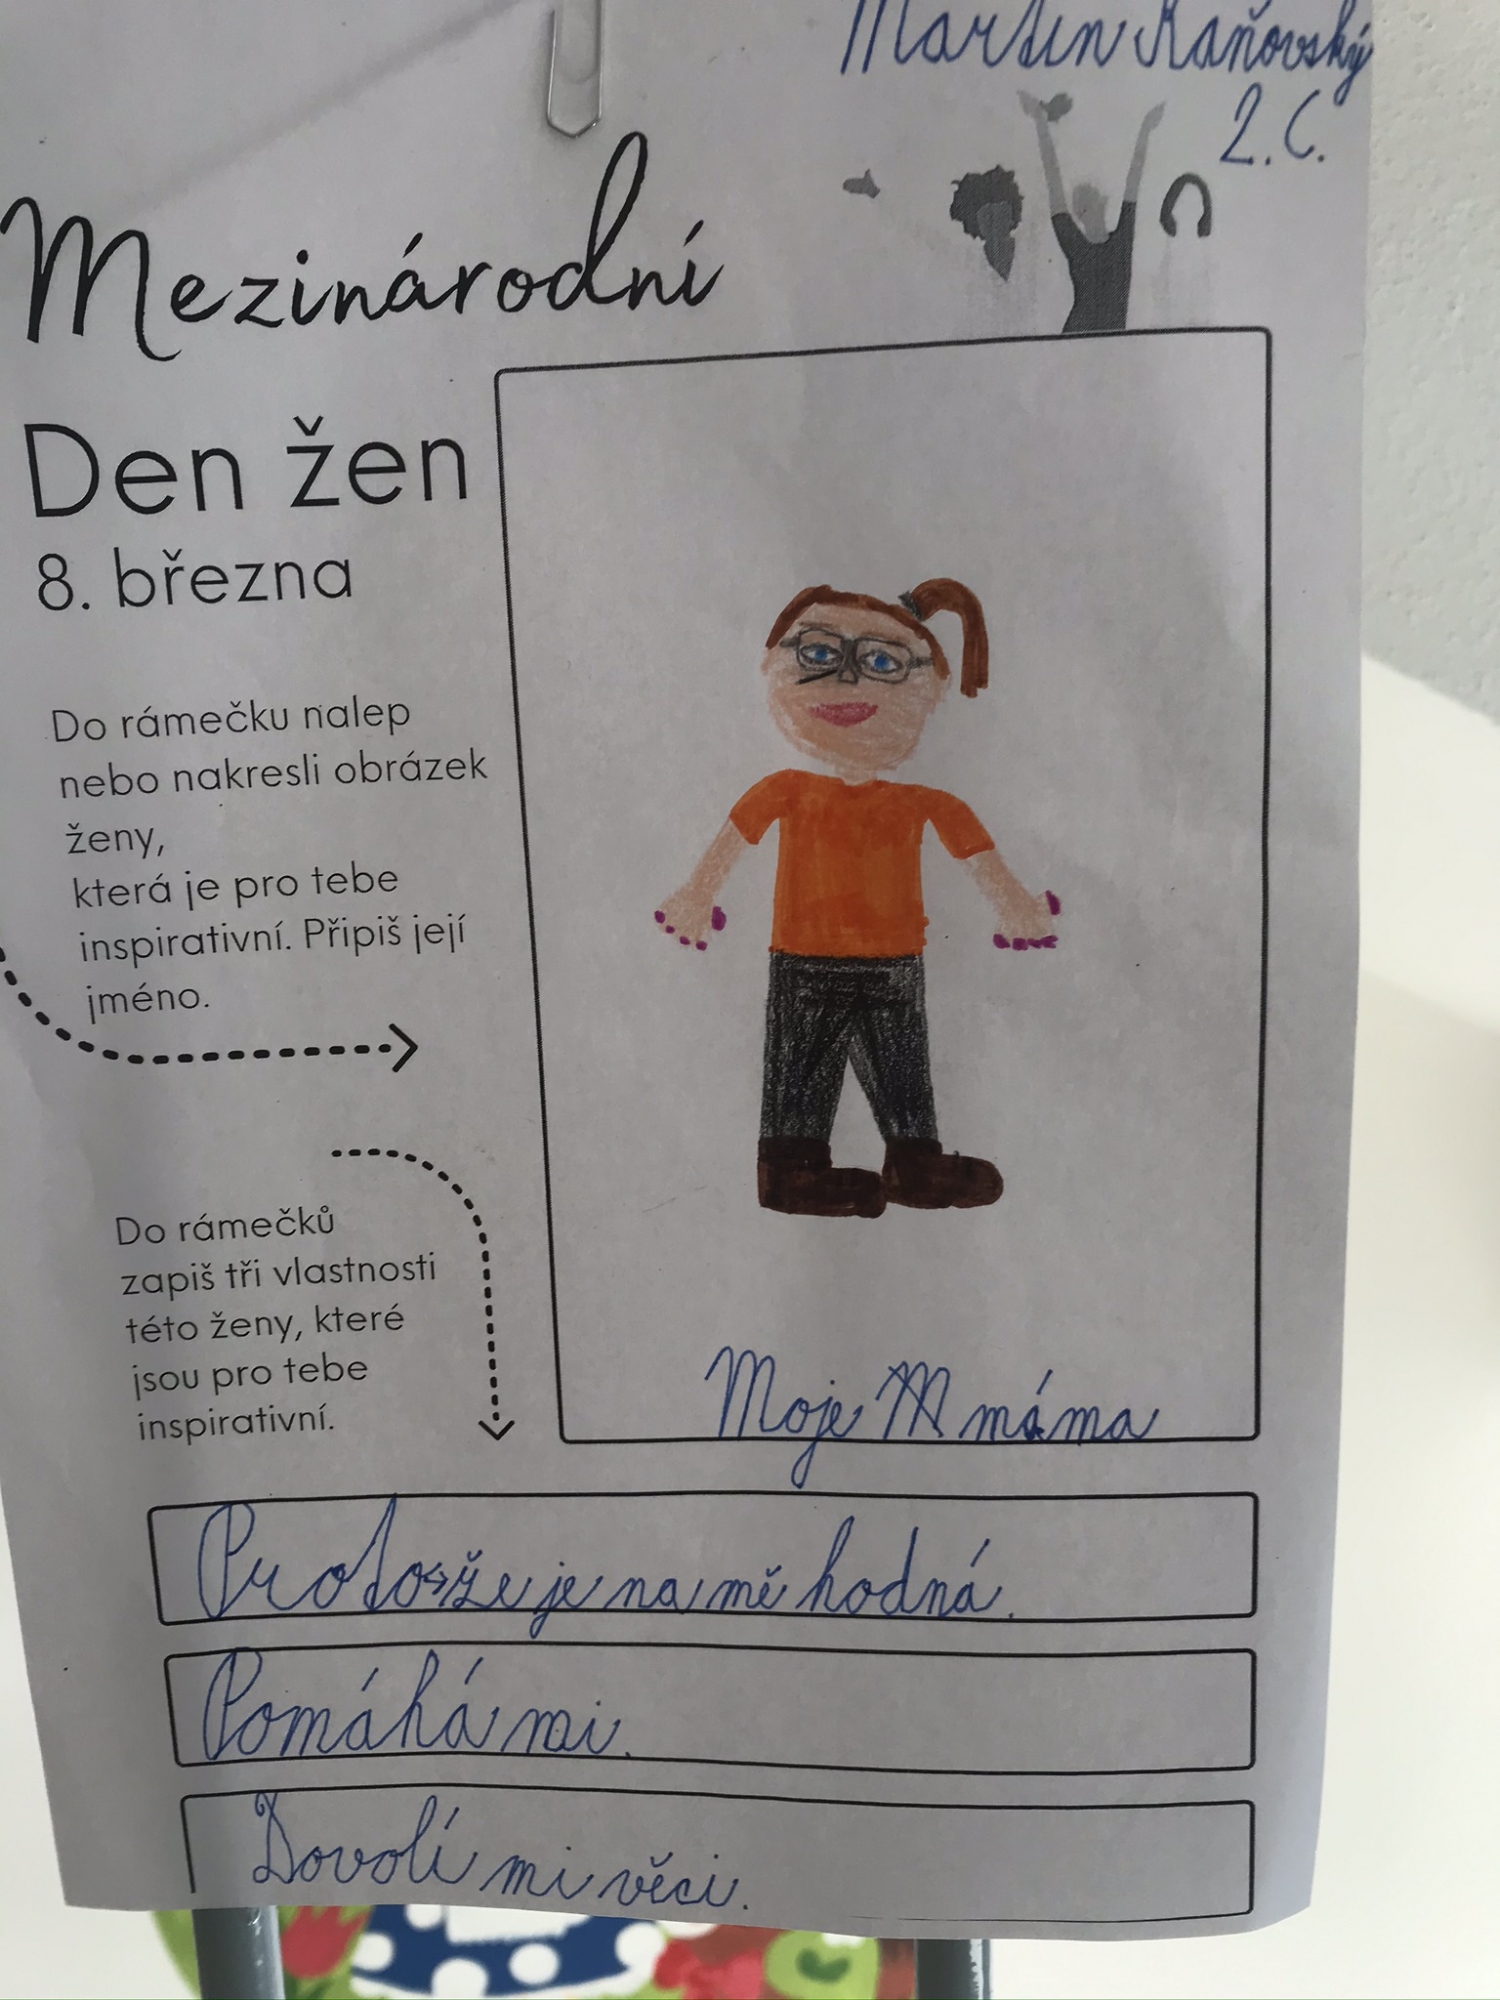 Martin Kaňovský
2. C.
Mezinárodní
Den žen
8. března
Do rámečku nalep
nebo nakresli obrázek
ženy,
která je pro tebe
inspirativní. Připiš její
jméno.
Do rámečků
zapiš tři vlastnosti
této ženy, které
jsou pro tebe
inspirativní.
Moje máma
Protože je na mě hodná.
Pomáhá mi.
Dovolí mi věci.